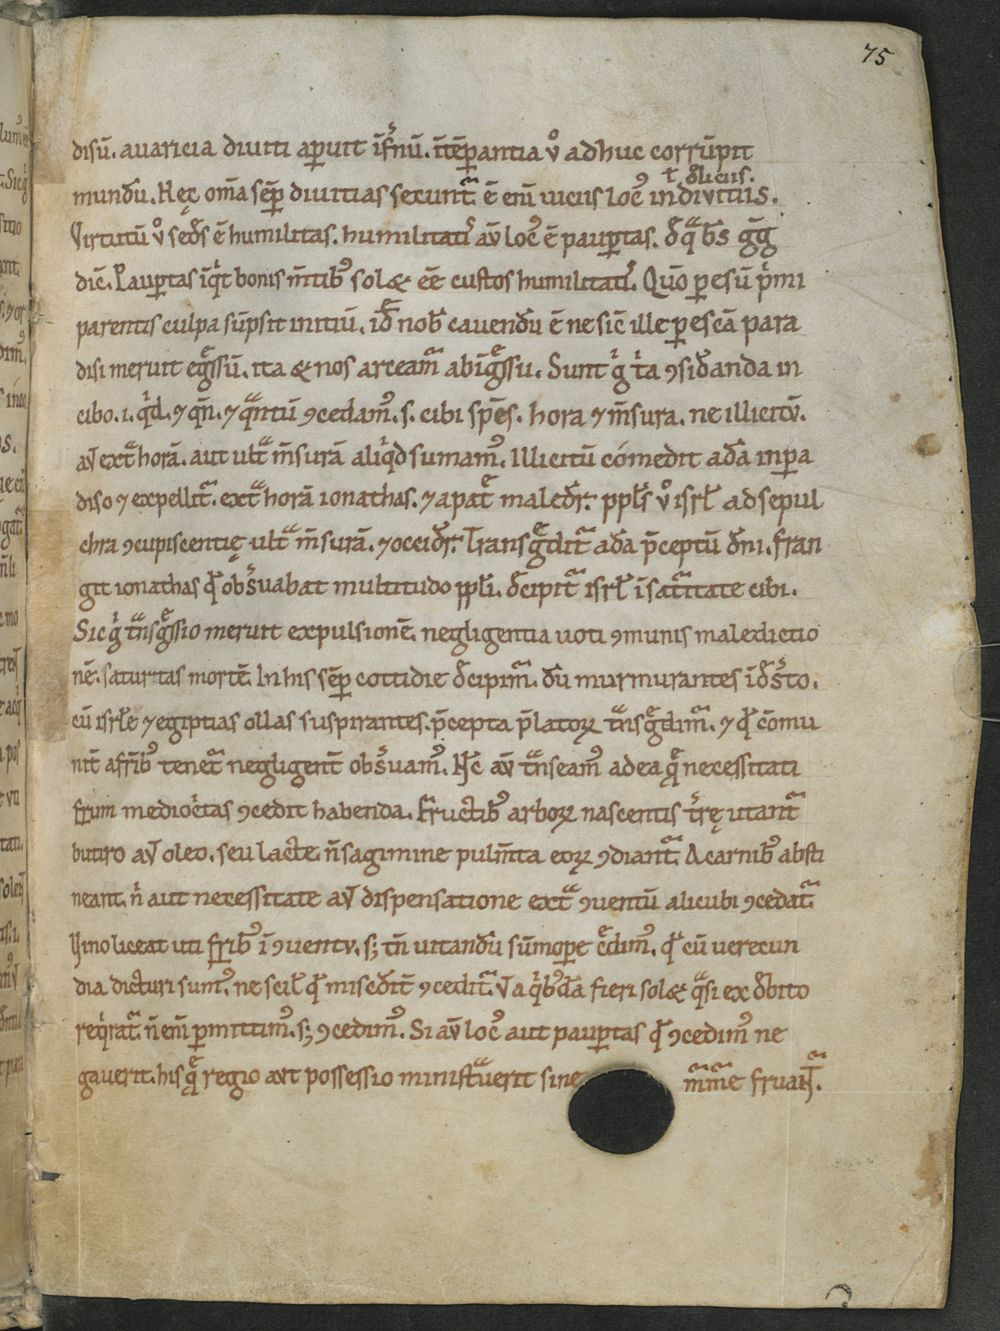 75
disũ. auaricia diuiti aperuit īfernũ. ītēperantia v̊ adhuc corrũpit
ł deliciis.
mundũ. Hęc om̄a sēp diuitias secuntᷓ. ē eni᷒ uiciis loc᷒ in diuitiis.
Virtutũ v̊ sedes ē humilitas. humilitatis av̄ loc᷒ ē paupertas. de qᷓ bs̄ gḡ
dic̄. Paupertas īq̇t bonis m̄tib᷒ sol& eē custos humilitatis. Quō per esũ ṗmi
parentis culpa sũpsit initiũ. id̄ nob̄ cauendũ ē ne sic̄ ille per escā para
disi meruit egͤssũ. ita & nos arceamᷓ ab īgͤssu. Sunt gͥ tͥa ꝯsiđanda in
cibo. i. qͥd. ⁊ qn̄. ⁊ qᷓntũ ꝯcedam᷒. s. cibi spēs. hora ⁊ m̄sura. ne illicitũ.
av̄ extᷓ horā. aut ultᷓ m̄surā aliqͥd sumam᷒. Illicitũ cómedit adā in para
diso ⁊ expellitᷓ. extᷓ horā ionathas. ⁊ a patͤ maledr̄. ppl̄s v̊ isrł ad sepul
chra ꝯcupiscentię ultᷓ m̄surā. ⁊ occidr̄. Transgͤditᷓ adā p̄ceptũ dn̄i. fran
git ionathas qđ obs̓uabat multitudo ppłi. decipitᷓ isrł ī saturitate cibi.
Sic gͥ tᷓnsgͤssio meruit expulsionē. negligentia uoti ꝯmunis maledictio
nē. saturitas mortē. In his sēp cottidie decipimᷓ. dũ murmurantes īdes̓to.
cũ isrłe ⁊ egiptias ollas suspirantes. p̄cepta p̄latoꝝ tᷓnsgͤdimᷓ. ⁊ qđ cōmu
nit̄ a fr̄ib᷒ tenetᷓ negligent̄ obs̓uam᷒. Nc̄ av̄ tᷓnseam᷒ ad ea qͤ necessitati
fr̄um mediocͥtas ꝯcedit habenda. Fructib᷒ arboꝝ nascentis terrę utantᷓ
butiro av̄ oleo. seu lacte. n̄ sagimine pulm̄ta eoꝝ ꝯdiantᷓ. A carnib᷒ absti
neant. nͥ aut necessitate av̄ dispensatione extᷓ ꝯuentũ alicubi ꝯcedatᷓ
Vino liceat uti fr̄ib᷒ ī ꝯuentu. s; tn̄ uitandũ sũmopere cͤdim᷒. qđ cũ uerecun
dia dicturi sum᷒. ne scił qđ misđit᷒ ꝯceditᷓ. v̄ a qͥb᷒dā fieri sol& qᷓsi ex debito
reqͥratᷓ. n̄ eni᷒ permittim᷒. s; ꝯcedim᷒. Si av̄ loc᷒ aut paupertas qđ ꝯcedim᷒ ne
gauerit. his qͤ regio aut possessio ministᷓuerit sine murmure fruantᷓ.